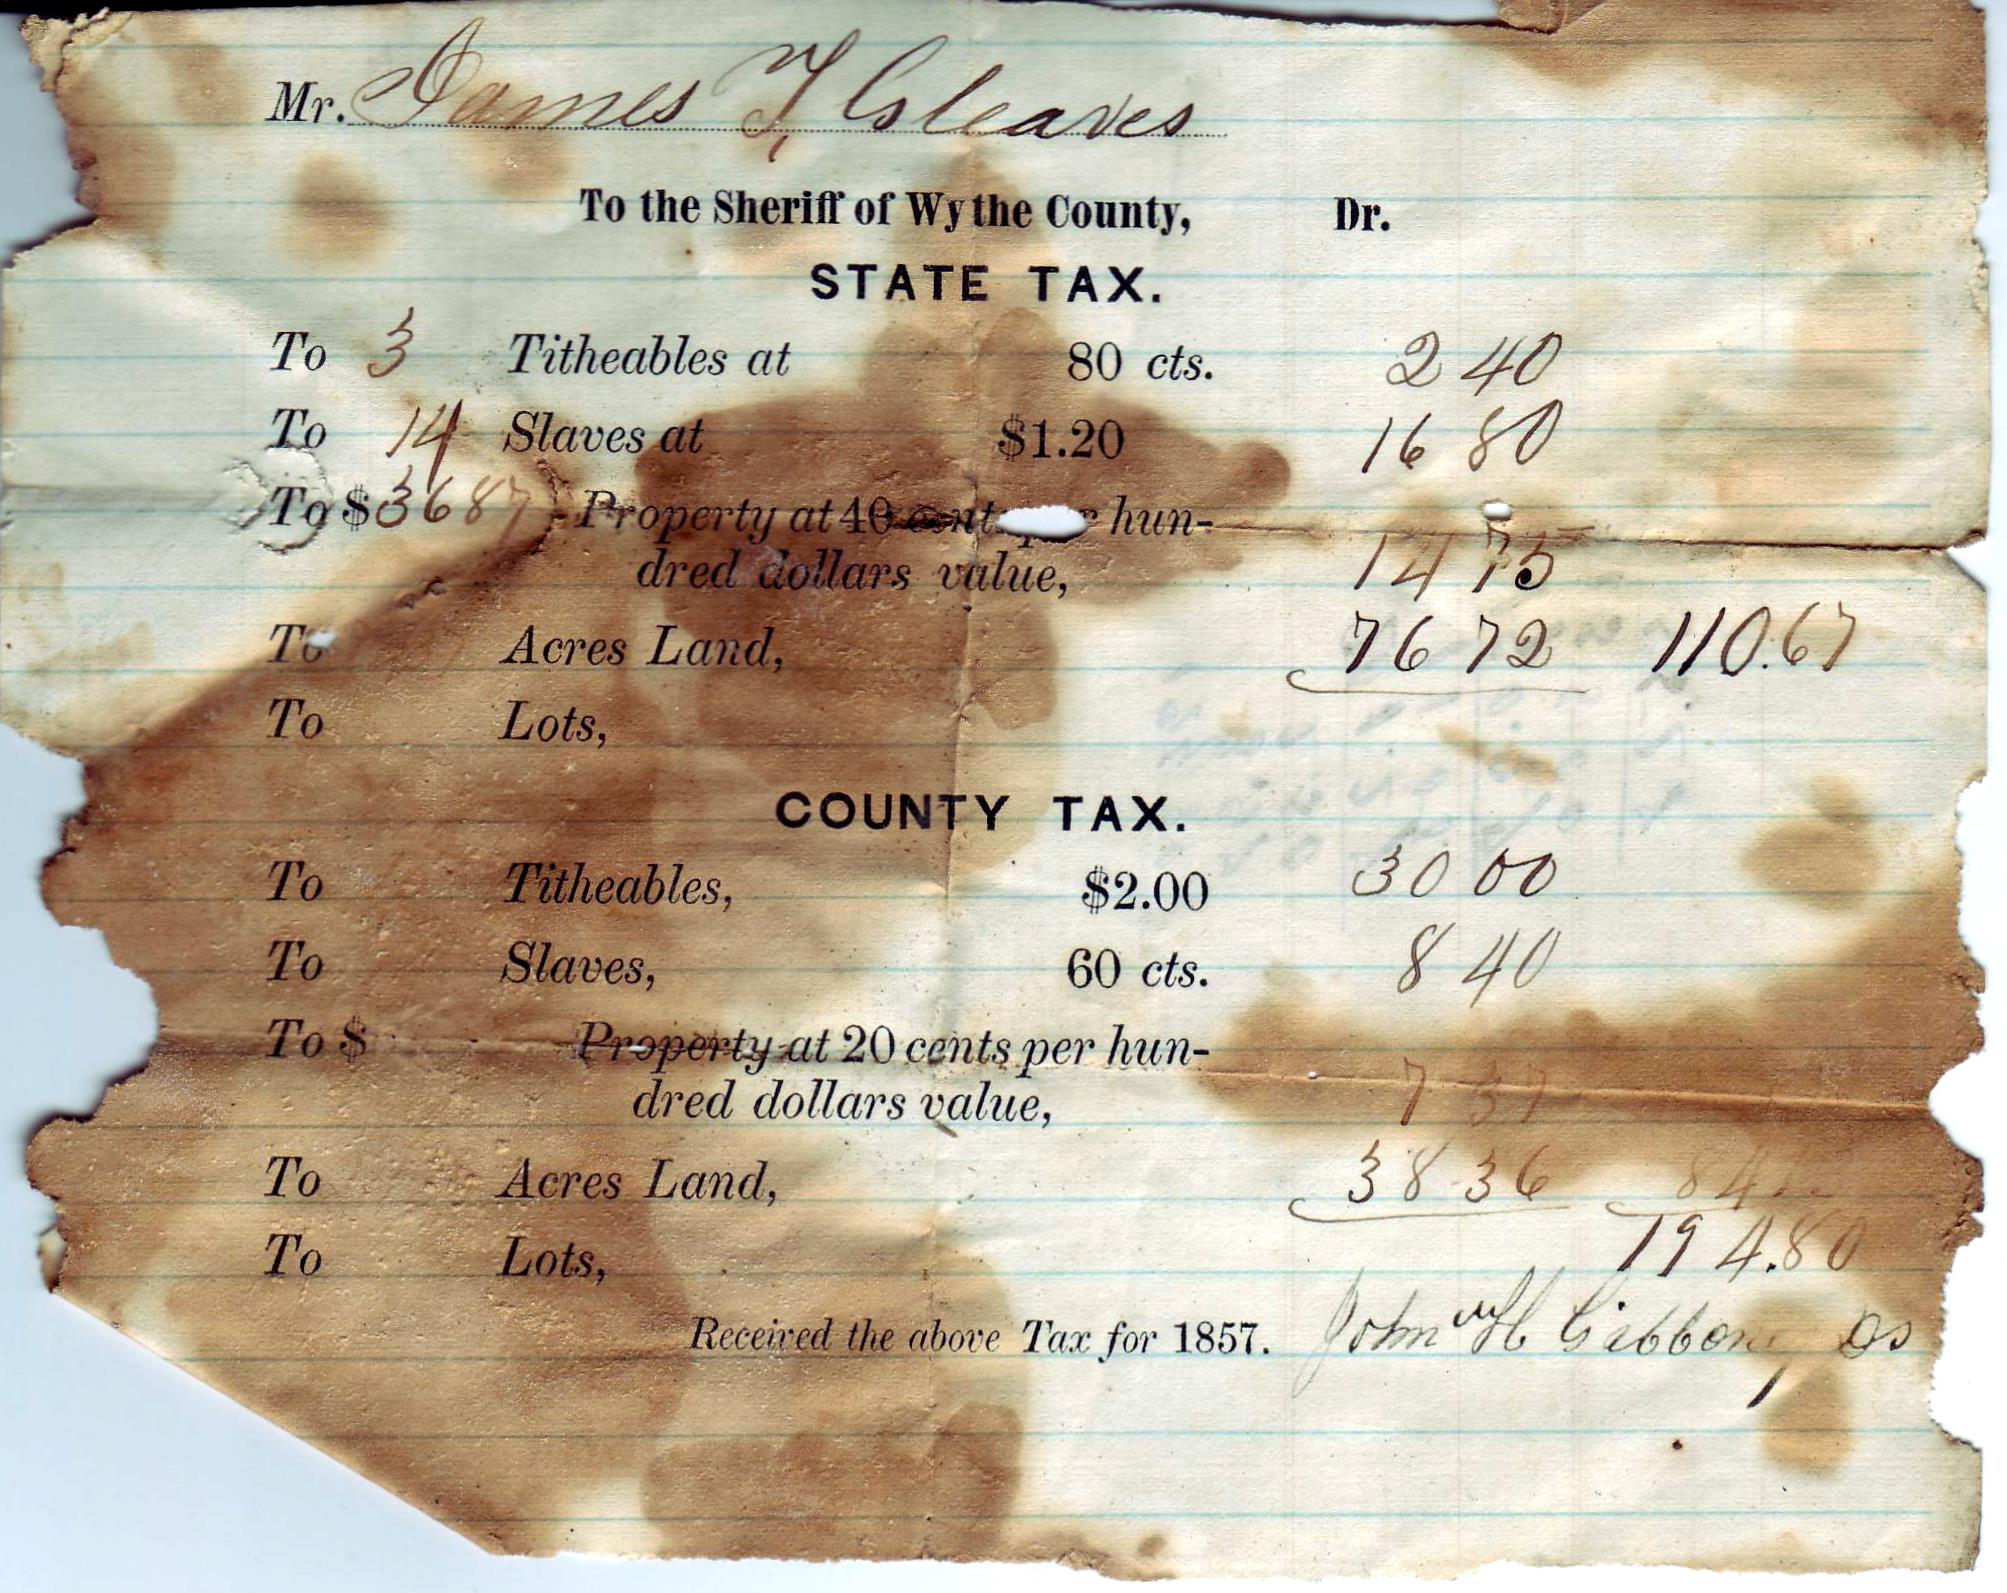 Mr. James T Gleaves
To the Sheriff of Wythe County, Dr.
STATE TAX.
To 3 Titheables at 80 cts. 2 40
To 14 Slaves at $1.20 16 80
To $3687 Property at 40 cents per hun-
dred dollars value, 14 75
To Acres Land, 76 72 110.67
To Lots,
COUNTY TAX.
To Titheables, $2.00 30 00
To Slaves, 60 cts. 8 40
To $ Property at 20 cents per hun-
dred dollars value, 7 37
To Acres Land, 38 36
To Lots, 194.80
Received the above Tax for 1857. John H Gibboney Ds